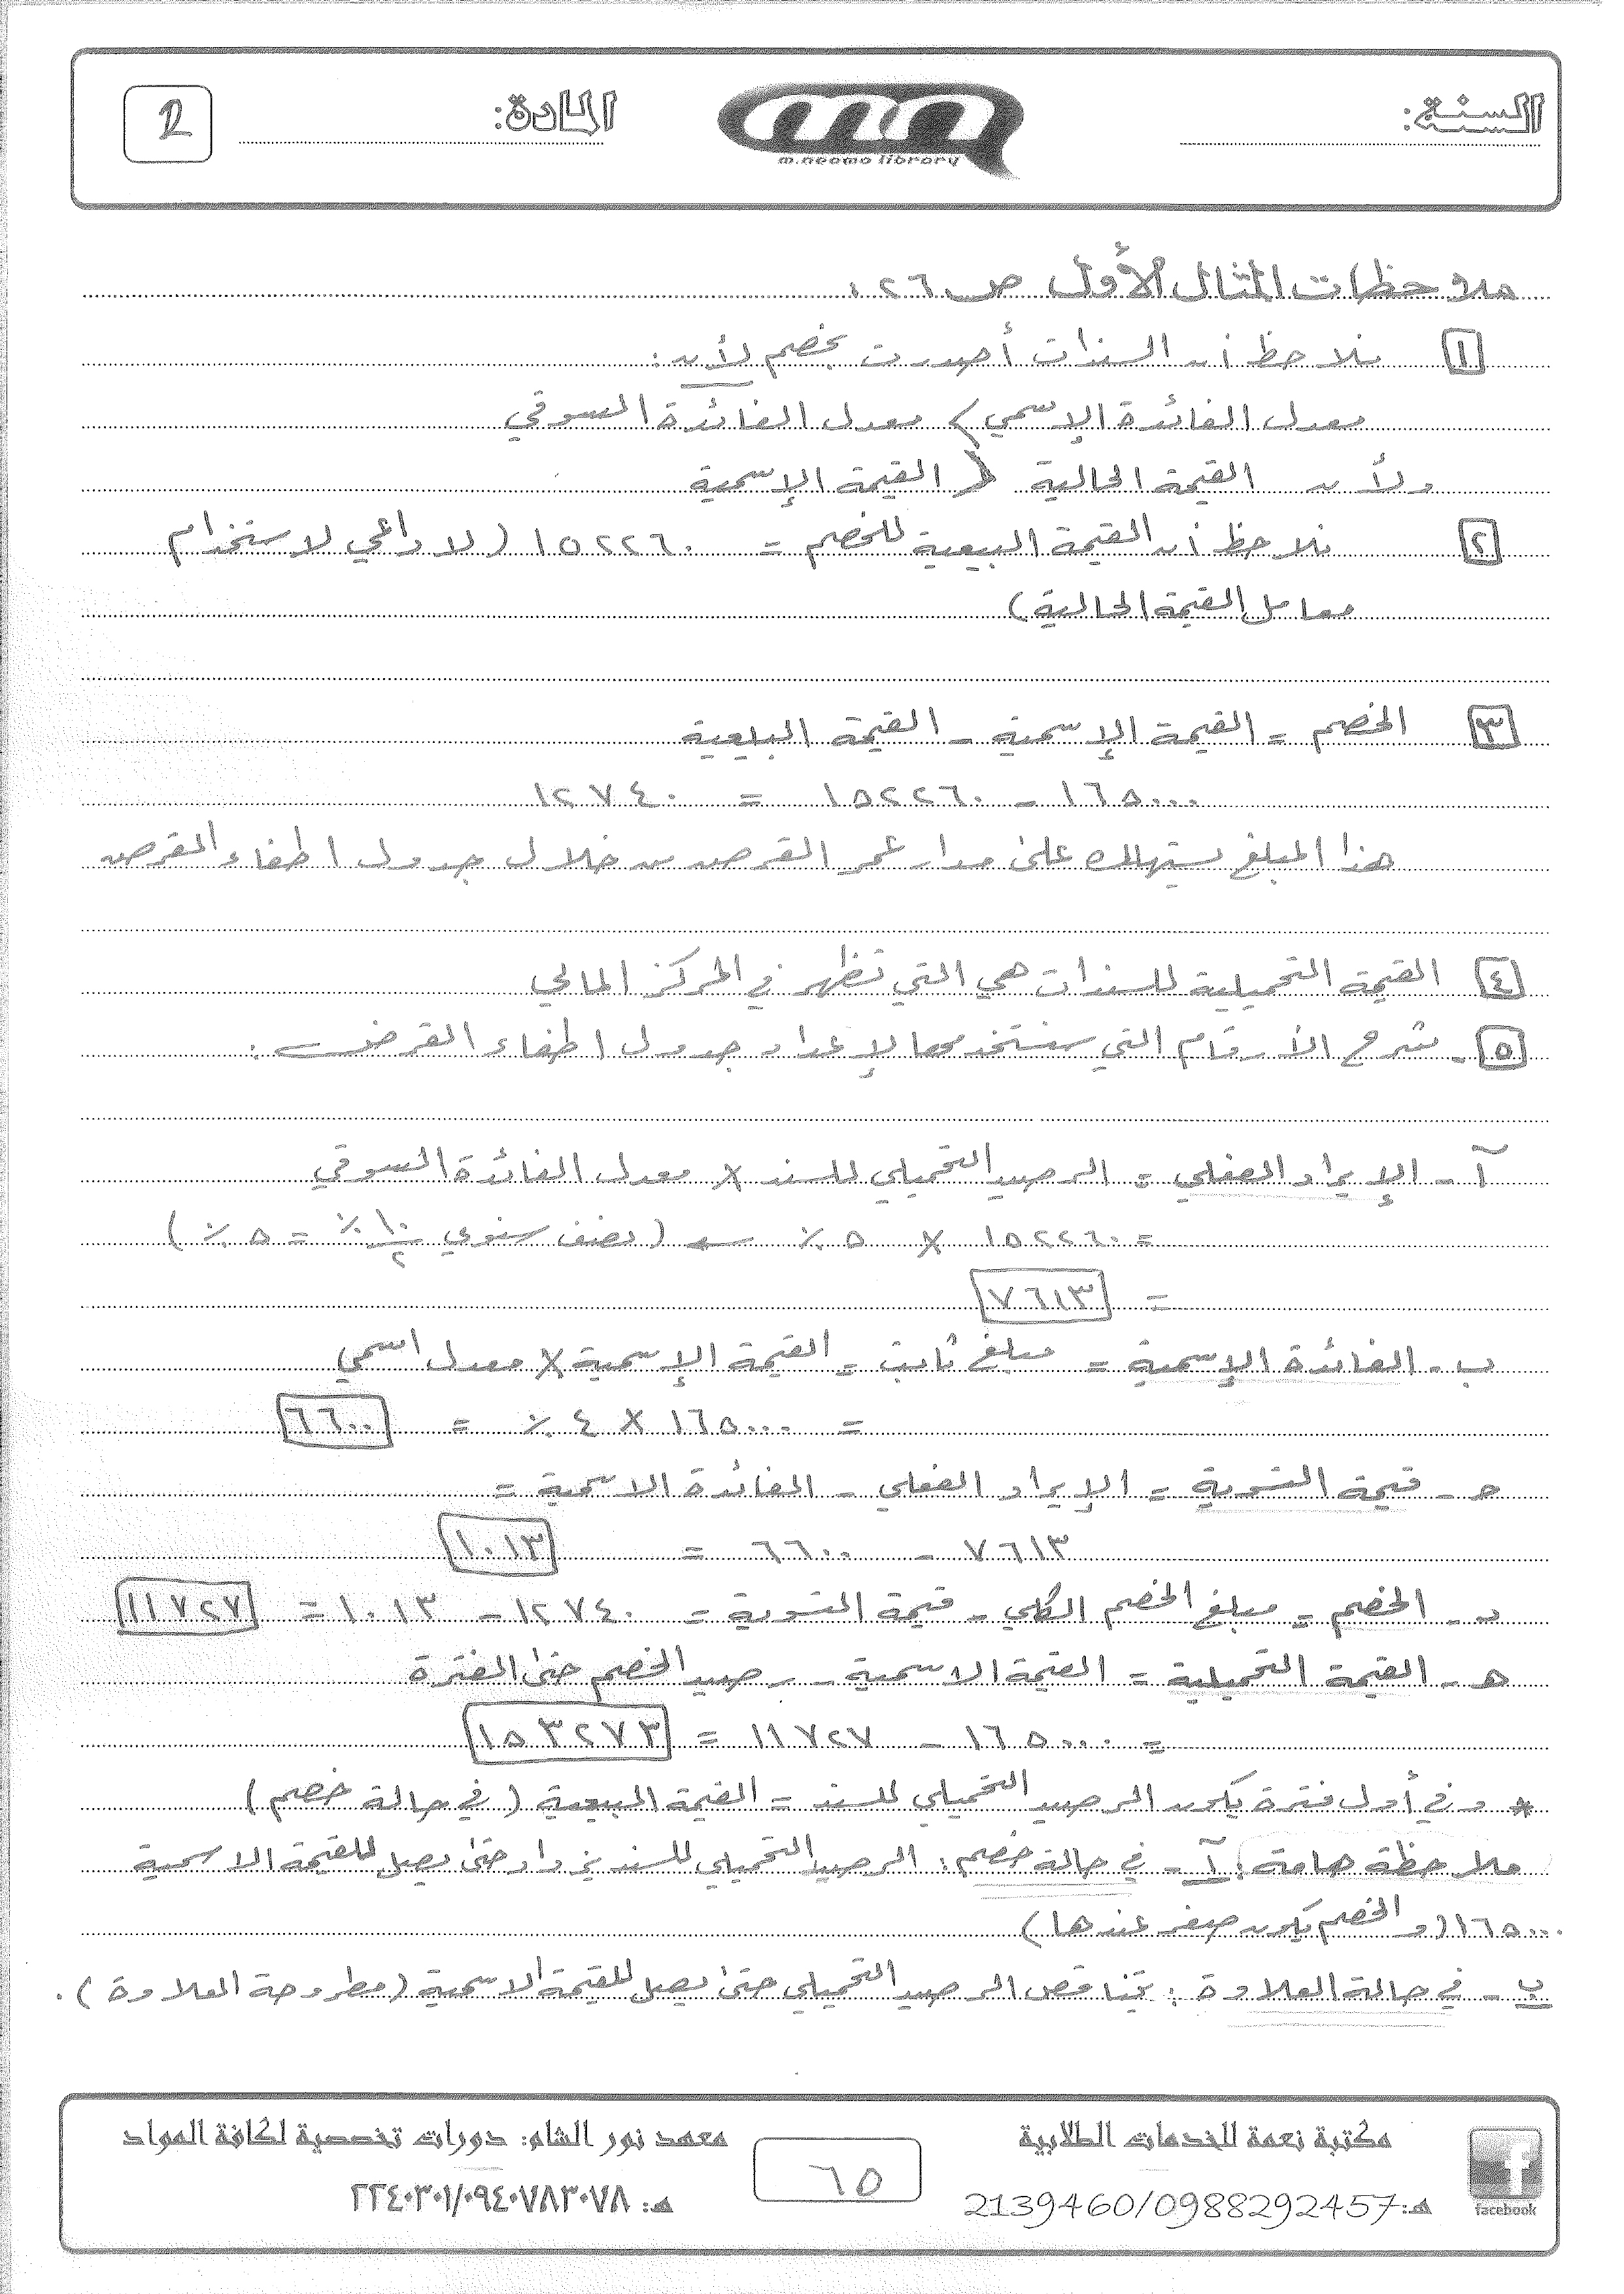 السنة:
m.neoma library
المادة:
2
ملاحظات المثال الأول ص ٢٦ :
١ نلاحظ أن السندات أصدرت بخصم لأن :
معدل الفائدة الإسمي > معدل الفائدة السوقي
ولأن القيمة الحالية > القيمة الإسمية
٢ نلاحظ أن القيمة البيعية للخصم = ١٥٢٢٦٠ ( لا داعي لاستخدام
معامل القيمة الحالية )
٣ الخصم = القيمة الإسمية - القيمة البيعية
١٦٥٠٠٠ - ١٥٢٢٦٠ = ١٢٧٤٠
هذا المبلغ يستهلك على مدار عمر القرض من خلال جدول اطفاء القرض
٤ القيمة التحميلية للسندات هي التي تظهر في المركز المالي
٥ - شرح الأرقام التي سنستخدمها لإعداد جدول اطفاء القرض :
آ - الإيراد الفعلي = الرصيد التحميلي للسند × معدل الفائدة السوقي
= ١٥٢٢٦٠ × ٥ ٪ ← ( نصف سنوي ١٠/٢ ٪ = ٥ ٪ )
= ٧٦١٣
ب - الفائدة الإسمية = مبلغ ثابت = القيمة الإسمية × معدل اسمي
= ١٦٥٠٠٠ × ٤ ٪ = ٦٦٠٠
حـ - قيمة التسوية = الإيراد الفعلي - الفائدة الاسمية =
٧٦١٣ - ٦٦٠٠ = ١٠١٣
د - الخصم = مبلغ الخصم الكلي - قيمة التسوية = ١٢٧٤٠ - ١٠١٣ = ١١٧٢٧
هـ - القيمة التحميلية = القيمة الاسمية - رصيد الخصم حتى الفترة
= ١٦٥٠٠٠ - ١١٧٢٧ = ١٥٣٢٧٣
* وفي أول فترة يكون الرصيد التحميلي للسند = القيمة البيعية ( في حالة خصم )
ملاحظة هامة : آ - في حالة خصم : الرصيد التحميلي للسند يزداد حتى يصل للقيمة الاسمية
١٦٥٠٠٠ ( و الخصم يكون صفر عندها )
ب - في حالة العلاوة : يتناقص الرصيد التحميلي حتى يصل للقيمة الاسمية ( مطروحة العلاوة ) .
facebook
مكتبة نعمة للخدمات الطلابية
هـ: 2139460/0988292457
٦٥
معهد نور الشام: دورات تخصصية لكافة المواد
هـ: ٢٢٤٠٣٠١/٠٩٤٠٧٨٣٠٧٨